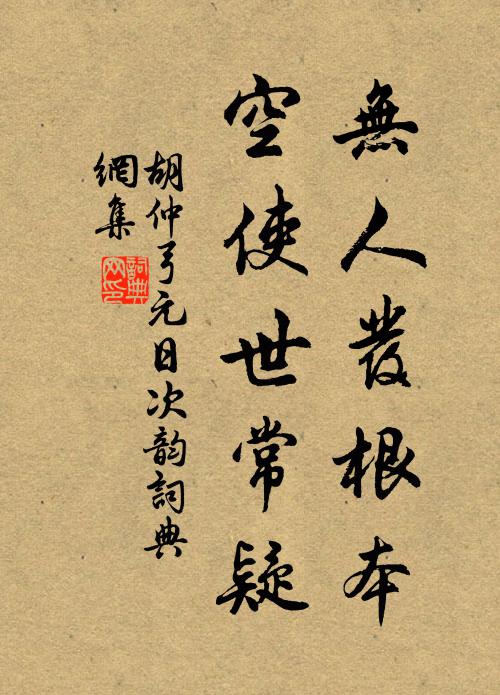 無人發根本
空使世常疑
胡仲弓元日次韵詞典
網集
詞典
网印